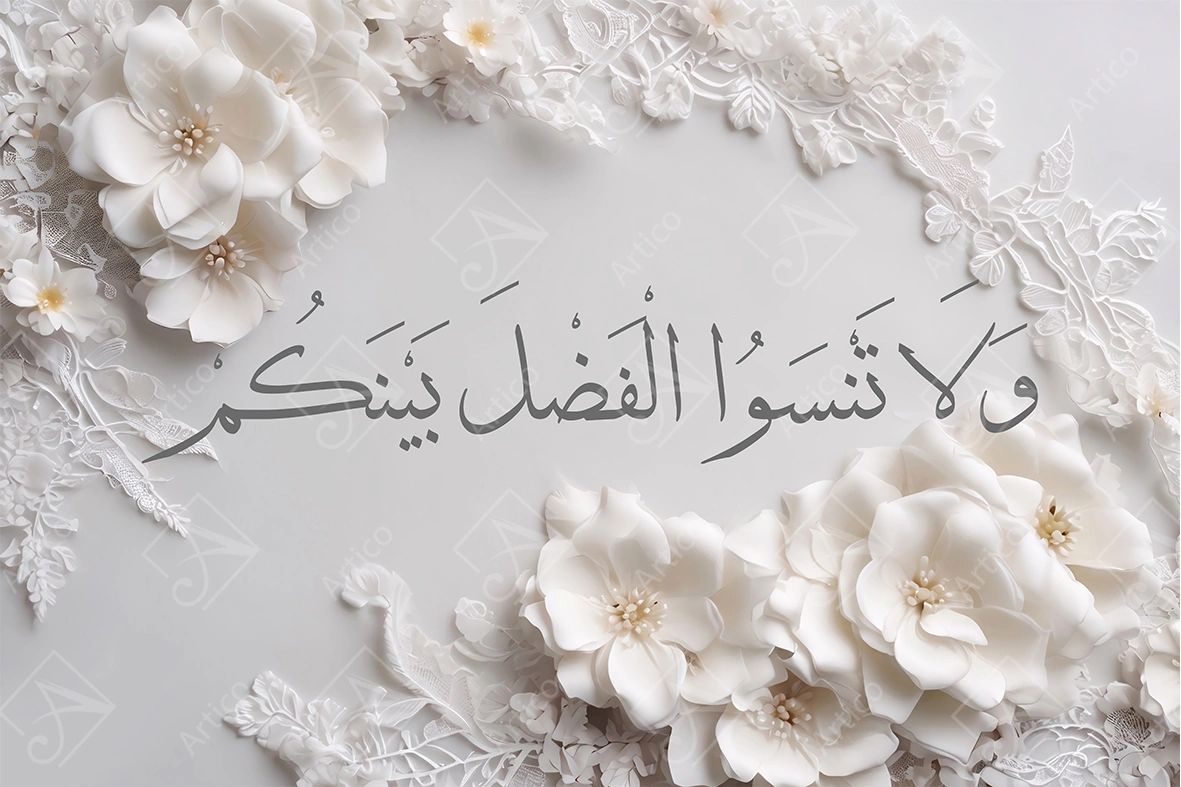 وَلَا تَنسَوُا الْفَضْلَ بَيْنَكُمْ
Artico